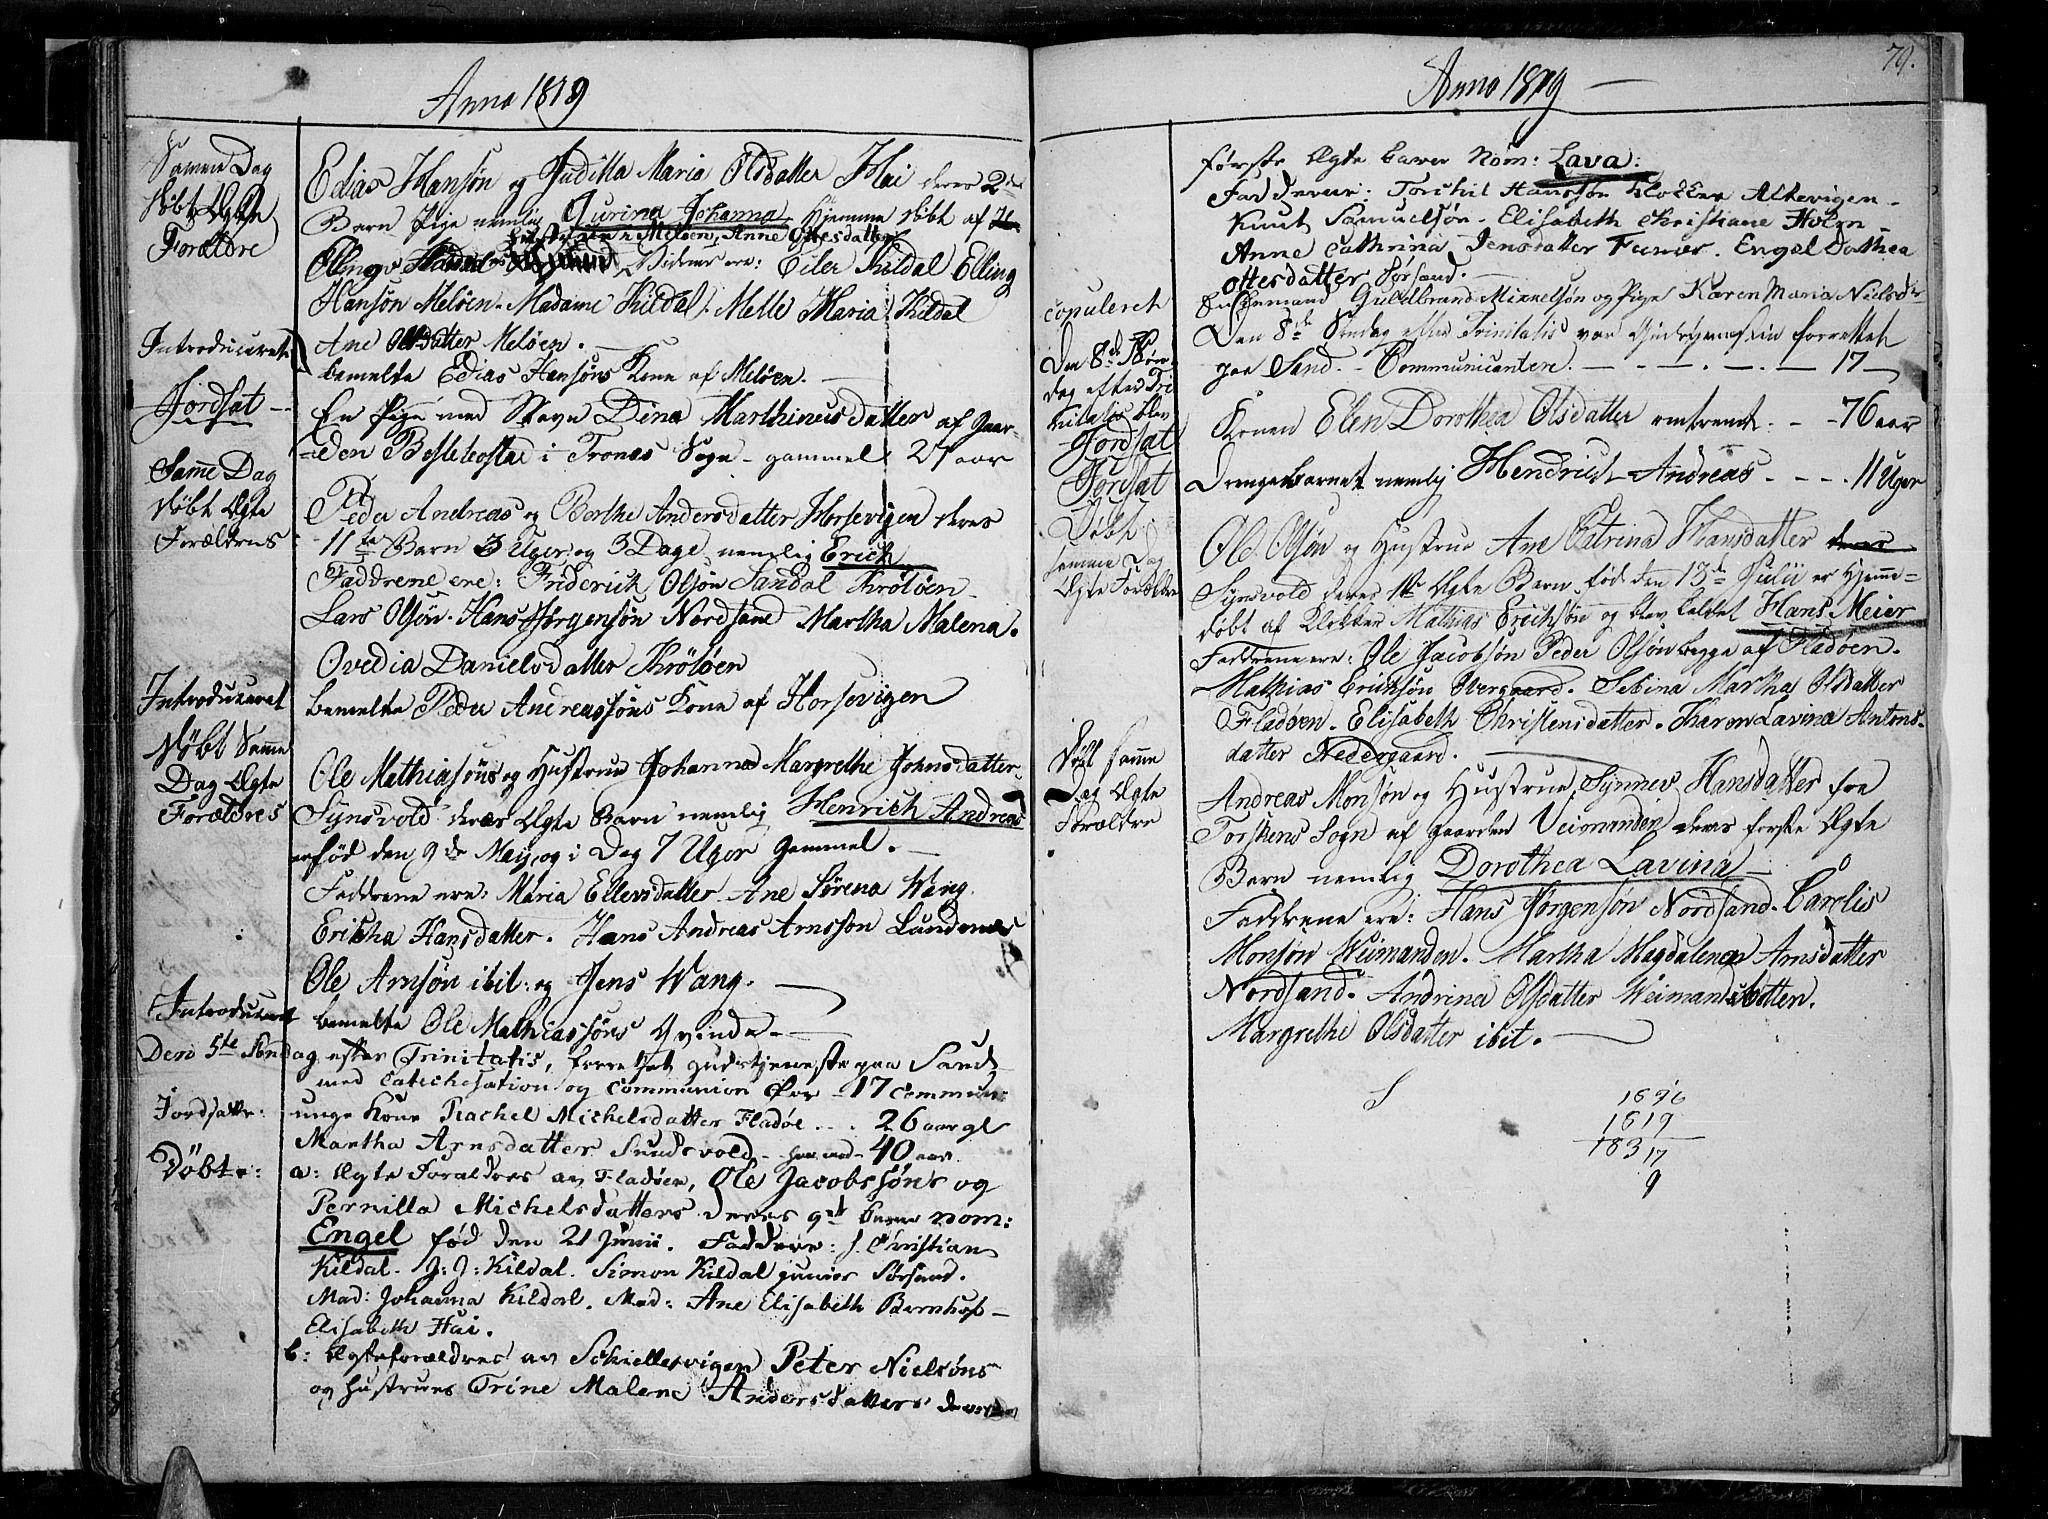 Anno 1819
Samme Dag
døbt Ægte
Forældre
Edias Hansøn og Juditta Maria Olsdatter Hai deres 2det
Barn Pige nemlig Jurina Johanna Hjemme døbt af
Meløen, Anne Ottesdatter
Ellings Vidner ere: Eiler Kildal Elling
Hansøn Meløen. Madame Kildal. Melle Maria Kildal
Ane Olsdatter Meløen.
Introduceret
bemelte Edias Hansøns Kone af Meløen.
Jordsat
En Pige med Navn Dina Marthinusdatter af Gaar-
den i Tronæs Sogn - gammel 27 aar
Samme Dag
døbt Ægte
Forældres
Peder Andreas og Berthe Andersdatter Horsevigen deres
11te Barn 3 Uger og 3 Dage nemlig Erich
Faddrene ere: Friderich Olsøn Sandal Krøtøen
Lars Olsøn. Hans Jørgensøn Nordsand Martha Malena.
Ovedia Danielsdatter Krøtøen
Introduceret
bemelte Peder Andreassøns Kone af Horsevigen
Døbt Samme
Dag Ægte
Forældres
Ole Mathiasøns og Hustrue Johanna Margrethe Johnsdatter
Synsvold deres Ægte Barn nemlig Henrich Andreas
er fød den 9de Maij, og i Dag 7 Uger Gammel.
Faddrene ere: Maria Ellersdatter Ane Sørena Wang
Ericha Hansdatter. Hans Andreas Arnsson Lundenes
Ole Arnsøn ibit: og Jens Wang.
Introduceret
bemelte Ole Mathiassøns Qvinde
Den 5te Søndag efter Trinitatis, forrettet Gudstjeneste paa Sand
med Catechisation og Communion for - 17 Commun:
Jordsatte:
unge Kone Rachel Michelsdatter Fladøe . . . 26 aar gl
Martha Arnsdatter Sundsvold - 40 aar.
Døbte:
a: Ægte Foraldres av Fladøen, Ole Jacobssøns og
Pernilla Michelsdatters deres 9de barn nom:
Engel fød den 21 Junii. Faddere: J. Christian
Kildal. J: J: Kildal. Simon Kildal junior Sørsand.
Mad: Johanna Kildal. Mad: Ane Elisabeth Bernhof
Elisabeth Hai.
b: Ægteforældres av Schiellesvigen Peter Nielsøns
og Hustrues Trine Malene Andersdatters deres
79.
Anno 1819
første Ægte barn Nom: Lava:
Faddere: Torchil Hanssøn Klokker Altevigen
Knut Samuelsøn. Elisabeth Christiane Holm
Anne Cathrina Jensdatter Funes. Engel Dorthea
Ottesdatter Sørsand.
copuleret
Enkemand Guldbrand Mikkelsøn og Pige Karen Maria Nielsdtr
Den 8de Søn-
dag efter Tri-
nitatis blev
Den 8de Søndag efter Trinitatis var Gudstjenesten forrettet
paa Sand. - Communicantere. - - - - 17
Jordsat
Konen Elen Dorothea Olsdatter omtrendt. - - 76 aar
Jordsat
Drengebarnet nemlig Hendrich Andreas - - - - 11 Uger
Døbt
samme Dag
Ægte Forældre
Ole Olsøn og Hustrue Ane Catrina Hansdatter deres
Synsvold deres 1ste Ægte Barn, fød den 13de Julii er Hjemme-
døbt af Klokker Mathias Erichsøn og blev kaldet Hans Meier
Faddrene ere: Ole Jacobsøn Peder Olsøn begge af Fladøen.
Mathias Erichsøn Overgaard. Sebina Martha Olsdatter
Fladøen. Elisabeth Christensdatter. Karen Lavina Antons-
datter Nedergaard.
Døbt samme
Dag Ægte
Forældre
Andreas Monsøn og Hustrue Synnes Hansdatter fra
Torskens Sogn af Gaarden Veimanden deres første Ægte
Barn nemlig Dorothea Lavina
Faddrene ere: Hans Jørgensøn Nordsand. Carelis
Monson Weimanden. Martha Magdalena Arnsdatter
Nordsand. Andrina Olsdatter Weimandsbotten.
Margrethe Olsdatter ibit.
S
1696
1619
18317
9